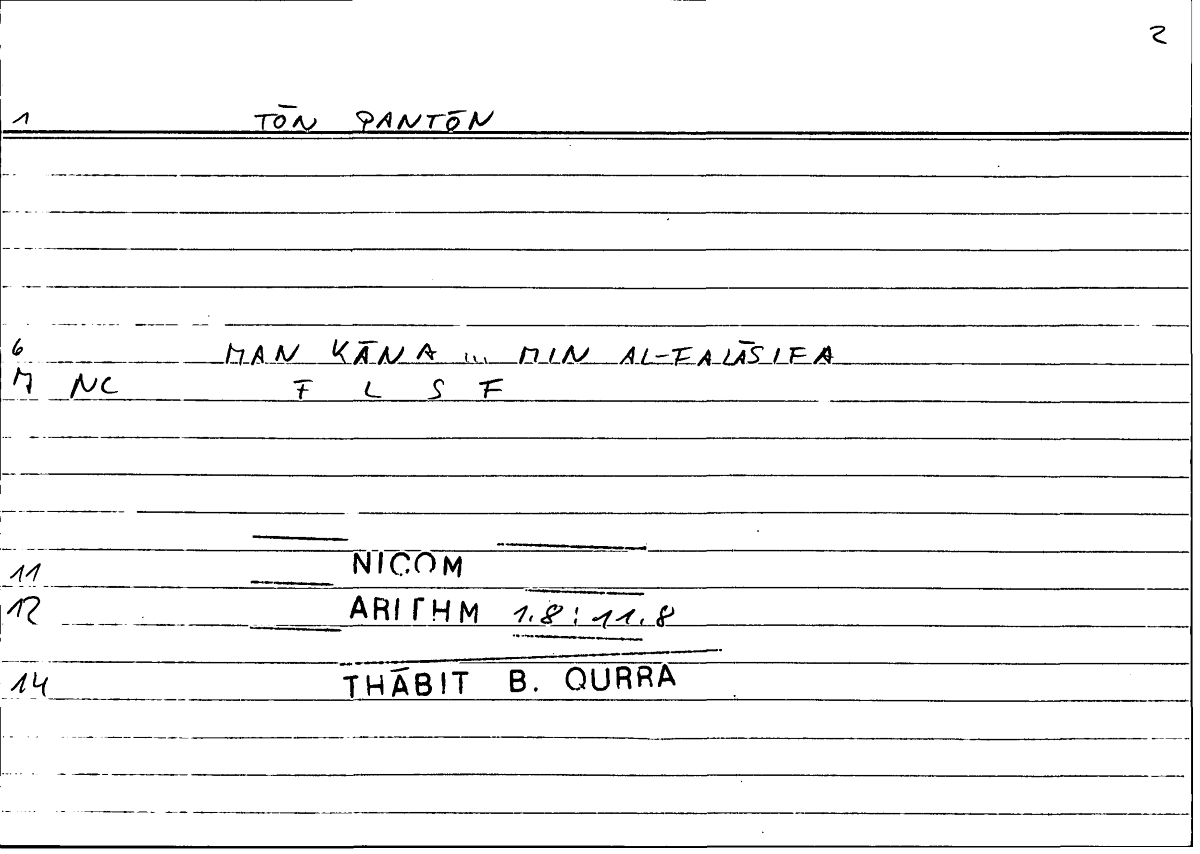 2
1 TŌN PANTŌN
6 MAN KĀNA ... MIN AL-FALĀSIFA
M NC F L S F
11 NICOM
12 ARITHM 1.8:11.8
14 THĀBIT B. QURRA